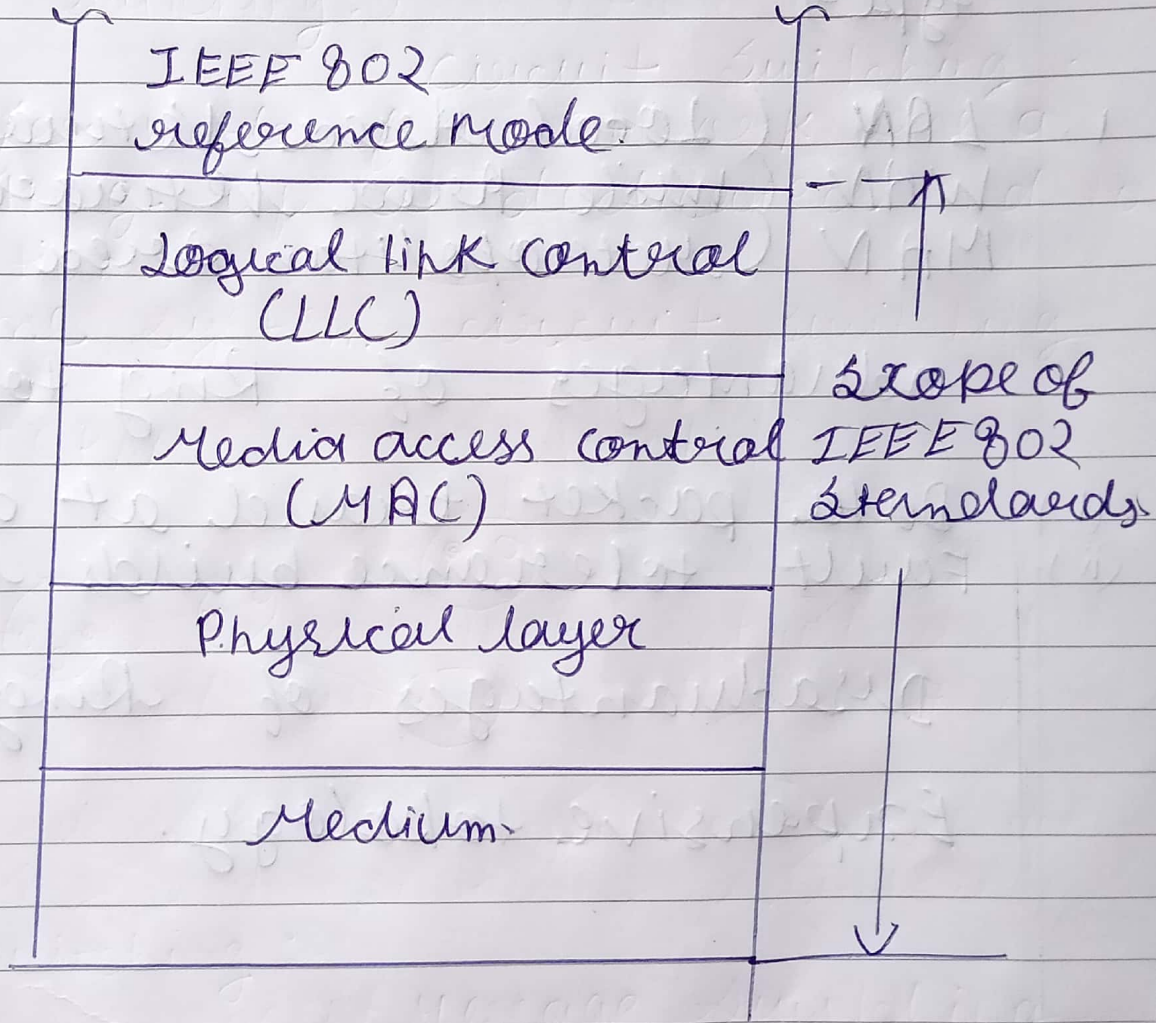 IEEE 802
reference Mode.
Logical link control
(LLC)
Media access control
(MAC)
Physical layer
Medium.
Scope of
IEEE 802
Standards.